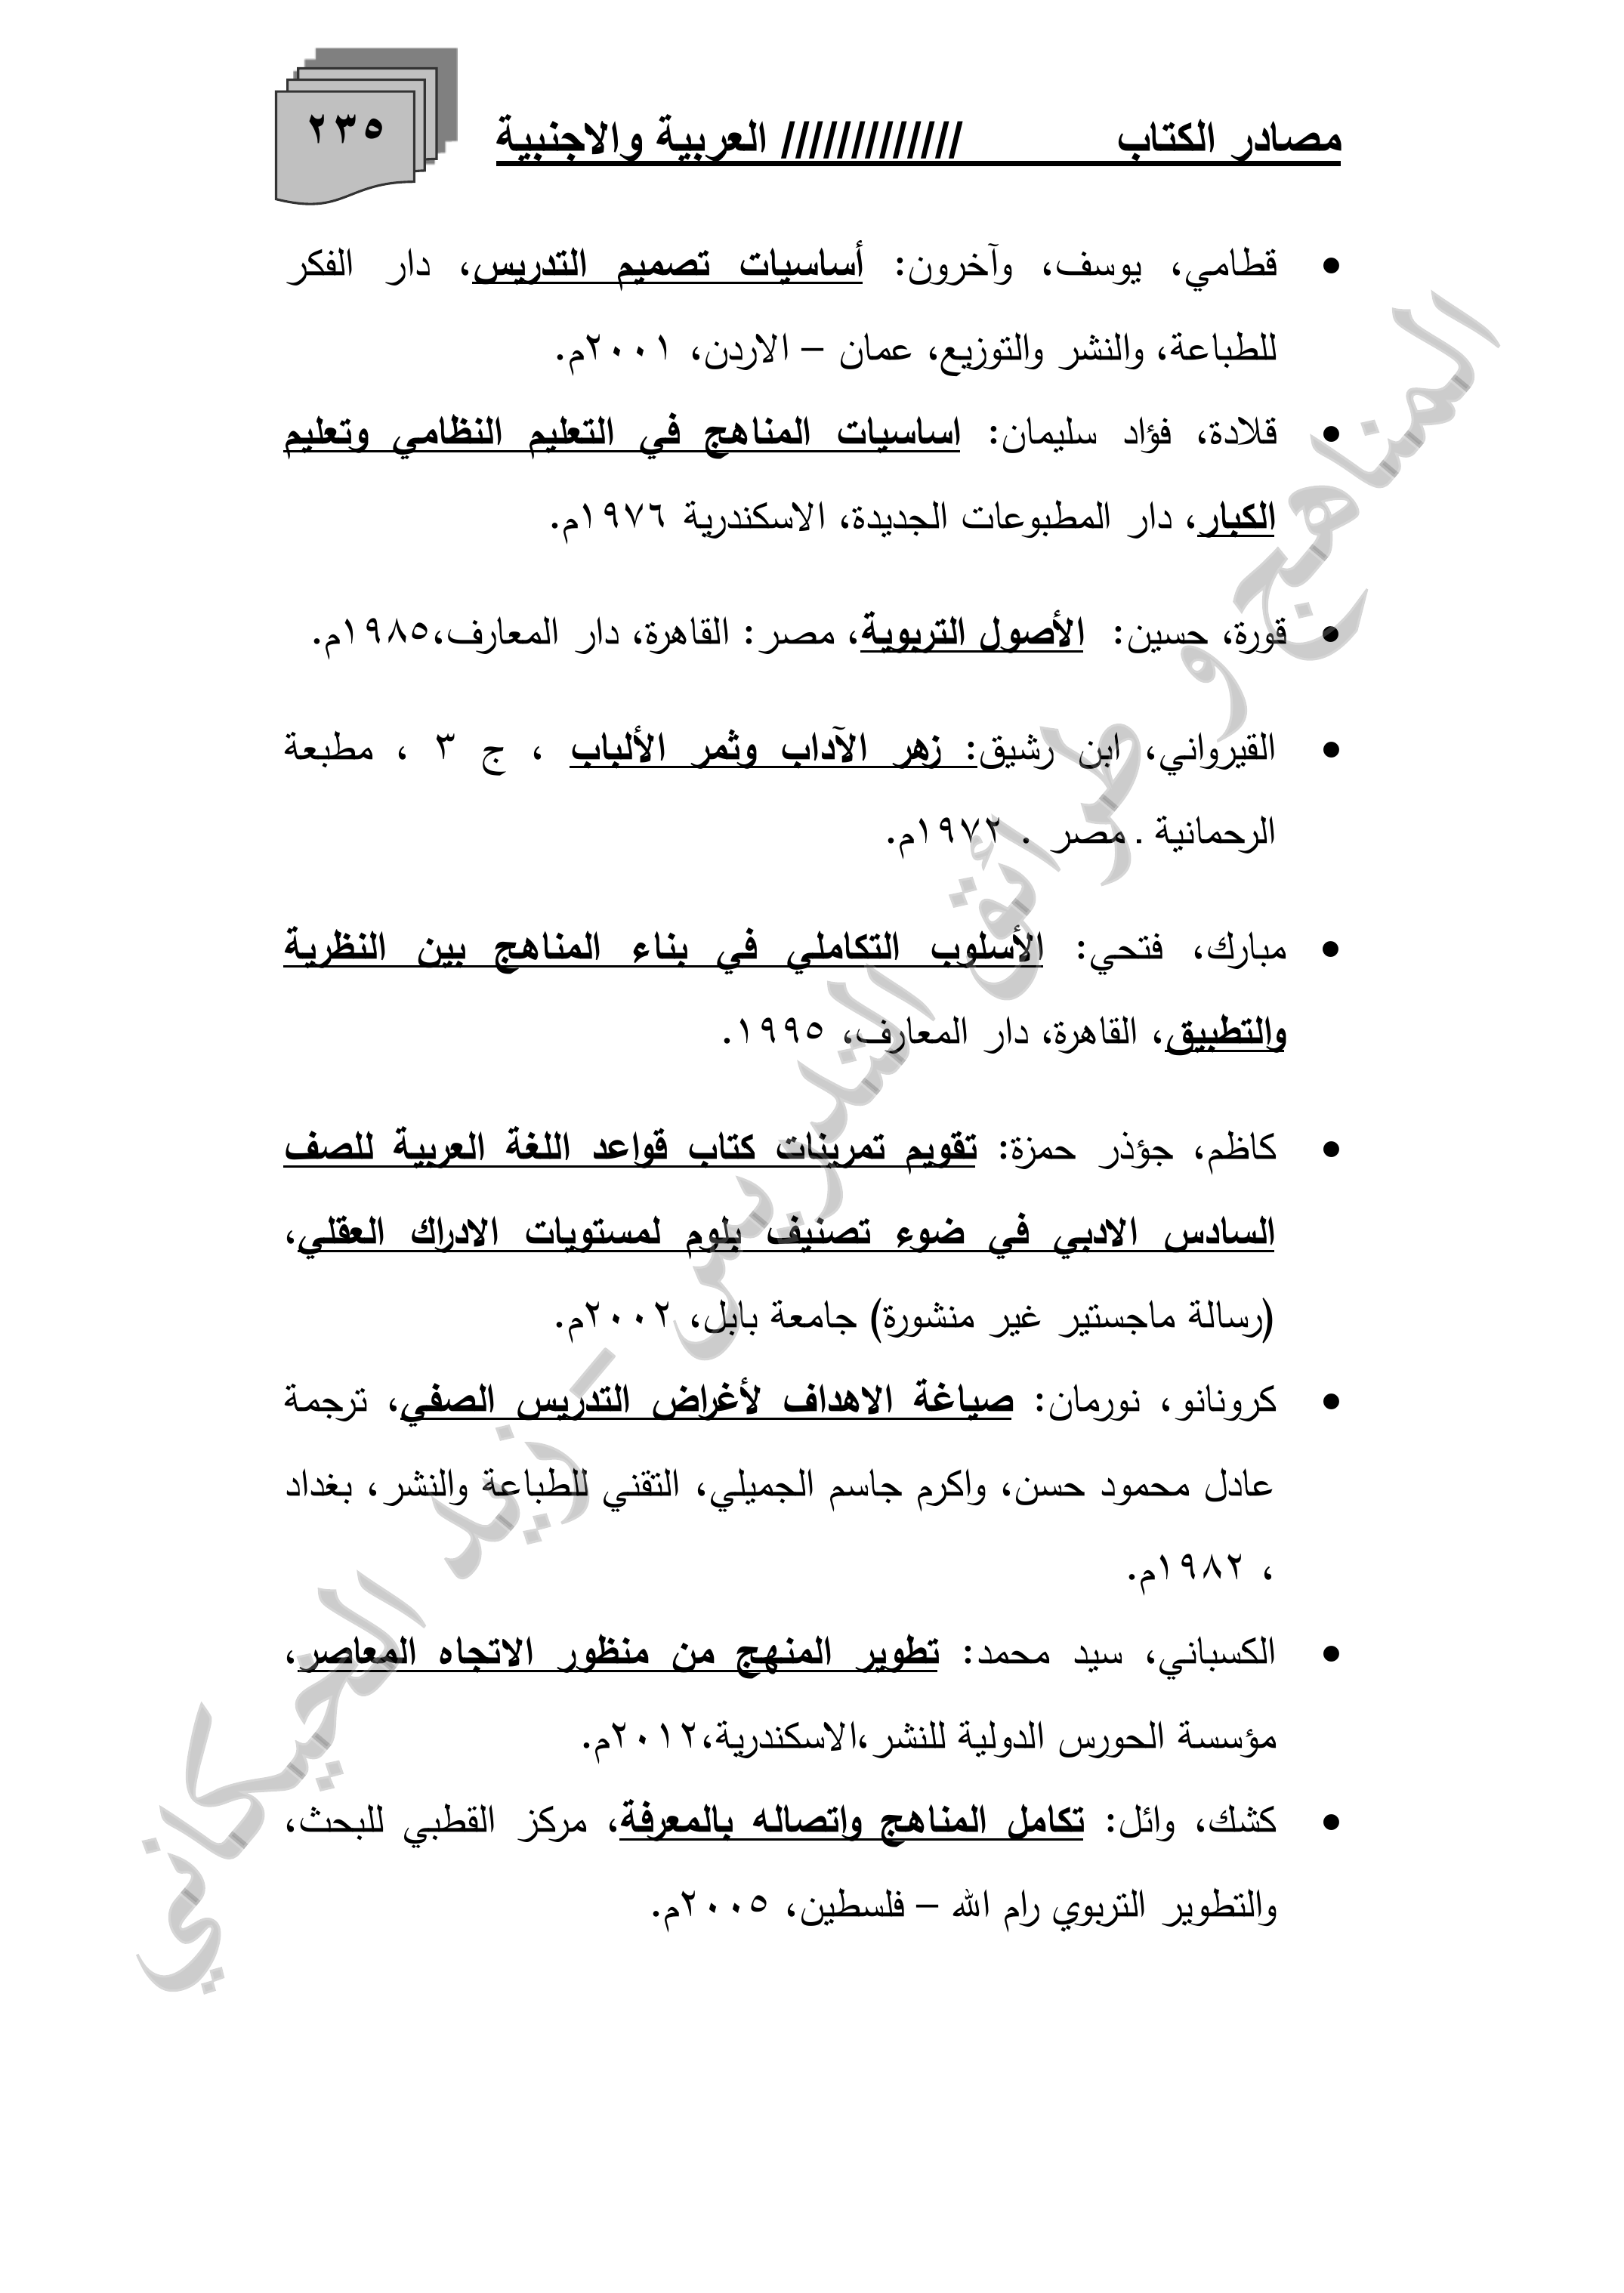 مصادر الكتاب ///////////// العربية والاجنبية
٢٣٥
• قطامي، يوسف، وآخرون: أساسيات تصميم التدريس، دار الفكر
للطباعة، والنشر والتوزيع، عمان – الاردن، ٢٠٠١م.
• قلادة، فؤاد سليمان: اساسيات المناهج في التعليم النظامي وتعليم
الكبار، دار المطبوعات الجديدة، الاسكندرية ١٩٧٦م.
• قورة، حسين: الأصول التربوية، مصر: القاهرة، دار المعارف،١٩٨٥م.
• القيرواني، ابن رشيق: زهر الآداب وثمر الألباب ، ج ٣ ، مطبعة
الرحمانية . مصر . ١٩٧٢م.
• مبارك، فتحي: الأسلوب التكاملي في بناء المناهج بين النظرية
والتطبيق، القاهرة، دار المعارف، ١٩٩٥.
• كاظم، جؤذر حمزة: تقويم تمرينات كتاب قواعد اللغة العربية للصف
السادس الادبي في ضوء تصنيف بلوم لمستويات الادراك العقلي،
(رسالة ماجستير غير منشورة) جامعة بابل، ٢٠٠٢م.
• كرونانو، نورمان: صياغة الاهداف لأغراض التدريس الصفي، ترجمة
عادل محمود حسن، واكرم جاسم الجميلي، التقني للطباعة والنشر، بغداد
، ١٩٨٢م.
• الكسباني، سيد محمد: تطوير المنهج من منظور الاتجاه المعاصر،
مؤسسة الحورس الدولية للنشر،الاسكندرية،٢٠١٢م.
• كشك، وائل: تكامل المناهج واتصاله بالمعرفة، مركز القطبي للبحث،
والتطوير التربوي رام الله – فلسطين، ٢٠٠٥م.
المناهج و طرائق التدريس – زيد الخيكاني